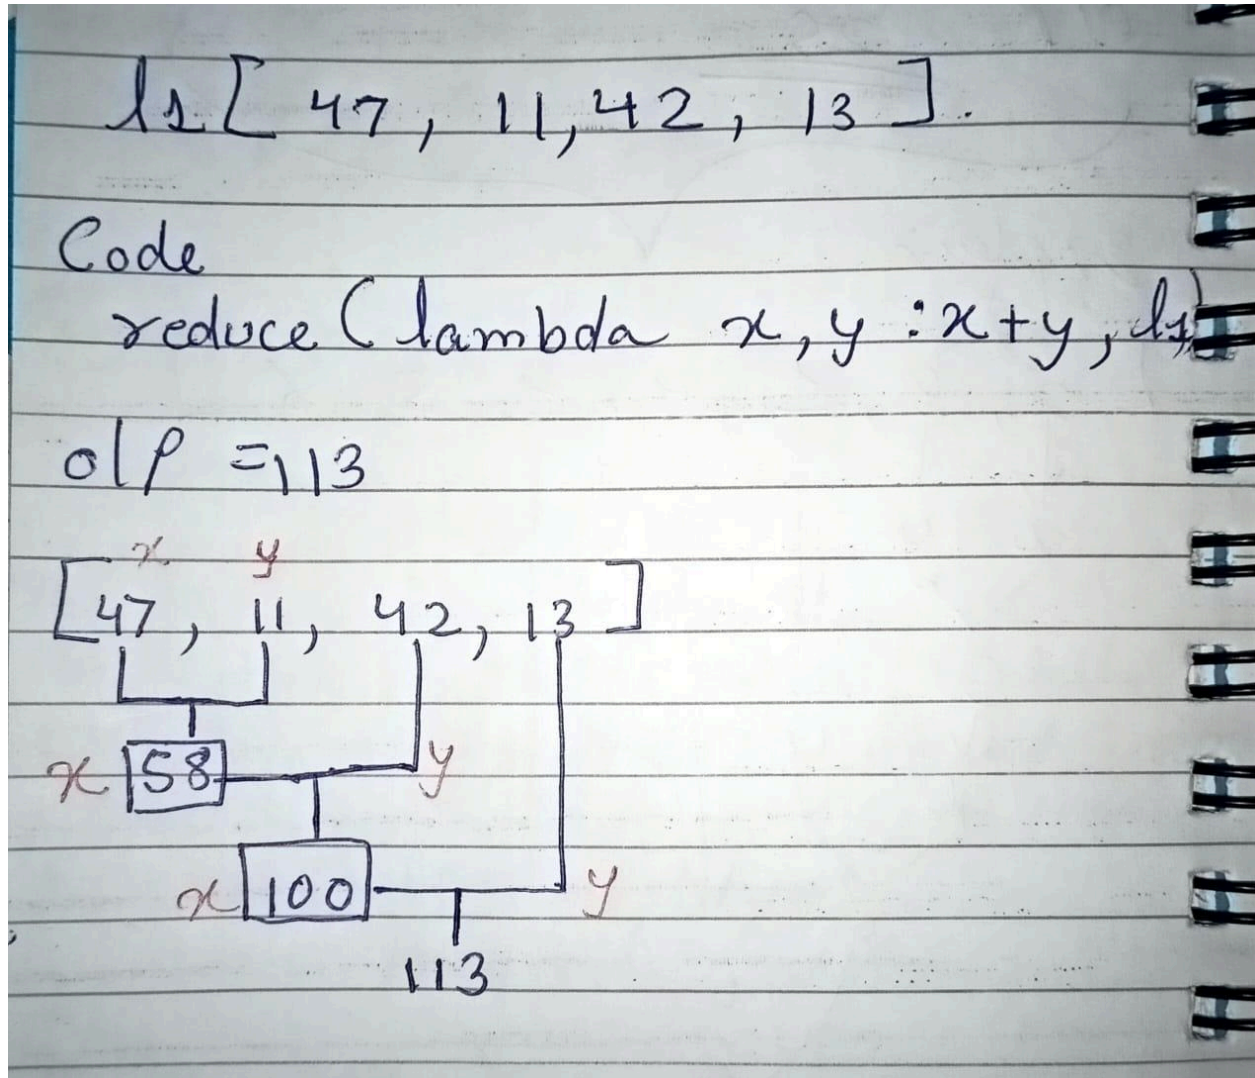 ls[ 47, 11, 42, 13 ].
Code
reduce ( lambda x, y : x+y, ls)
o/p =113
x y
[47, 11, 42, 13 ]
x 58 y
x 100 y
113